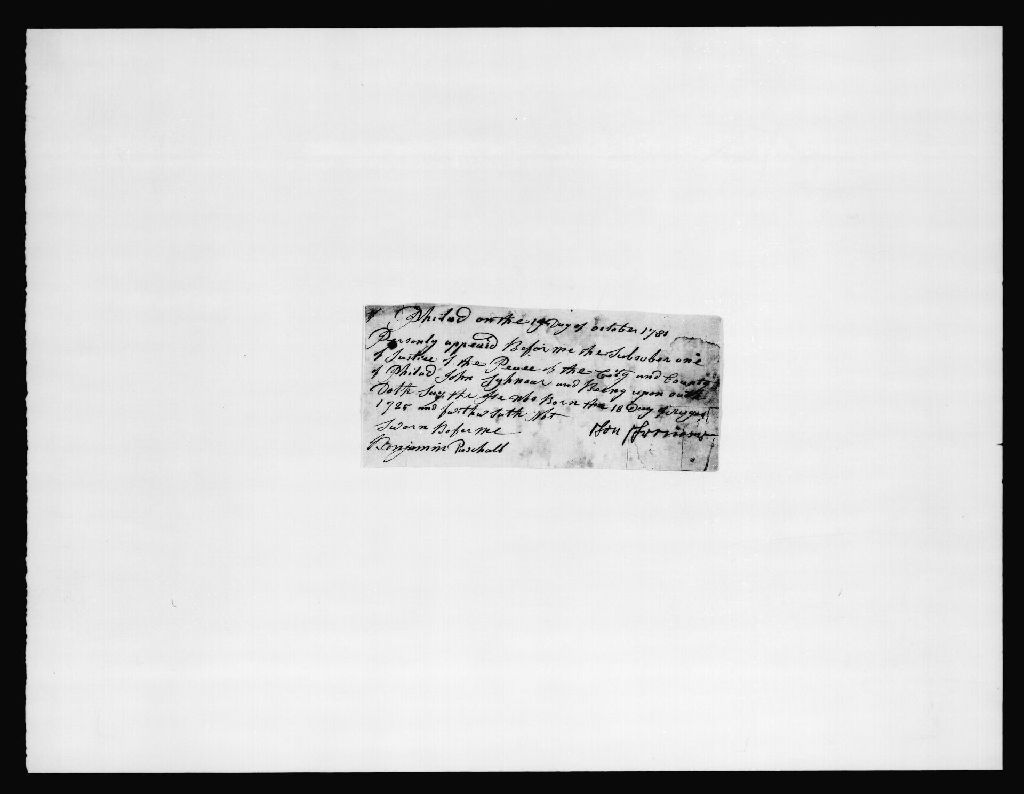 Philad on the 19 Day of october 1781
Personly appeard Before me the Subscriber one
of Justice of the Peace of the City and County
of Philad John and Being upon oath
Doth Say the He was Born the 18 Day of August
1725 and further Sath Not
Sworn Before me
Benjamin Paschall